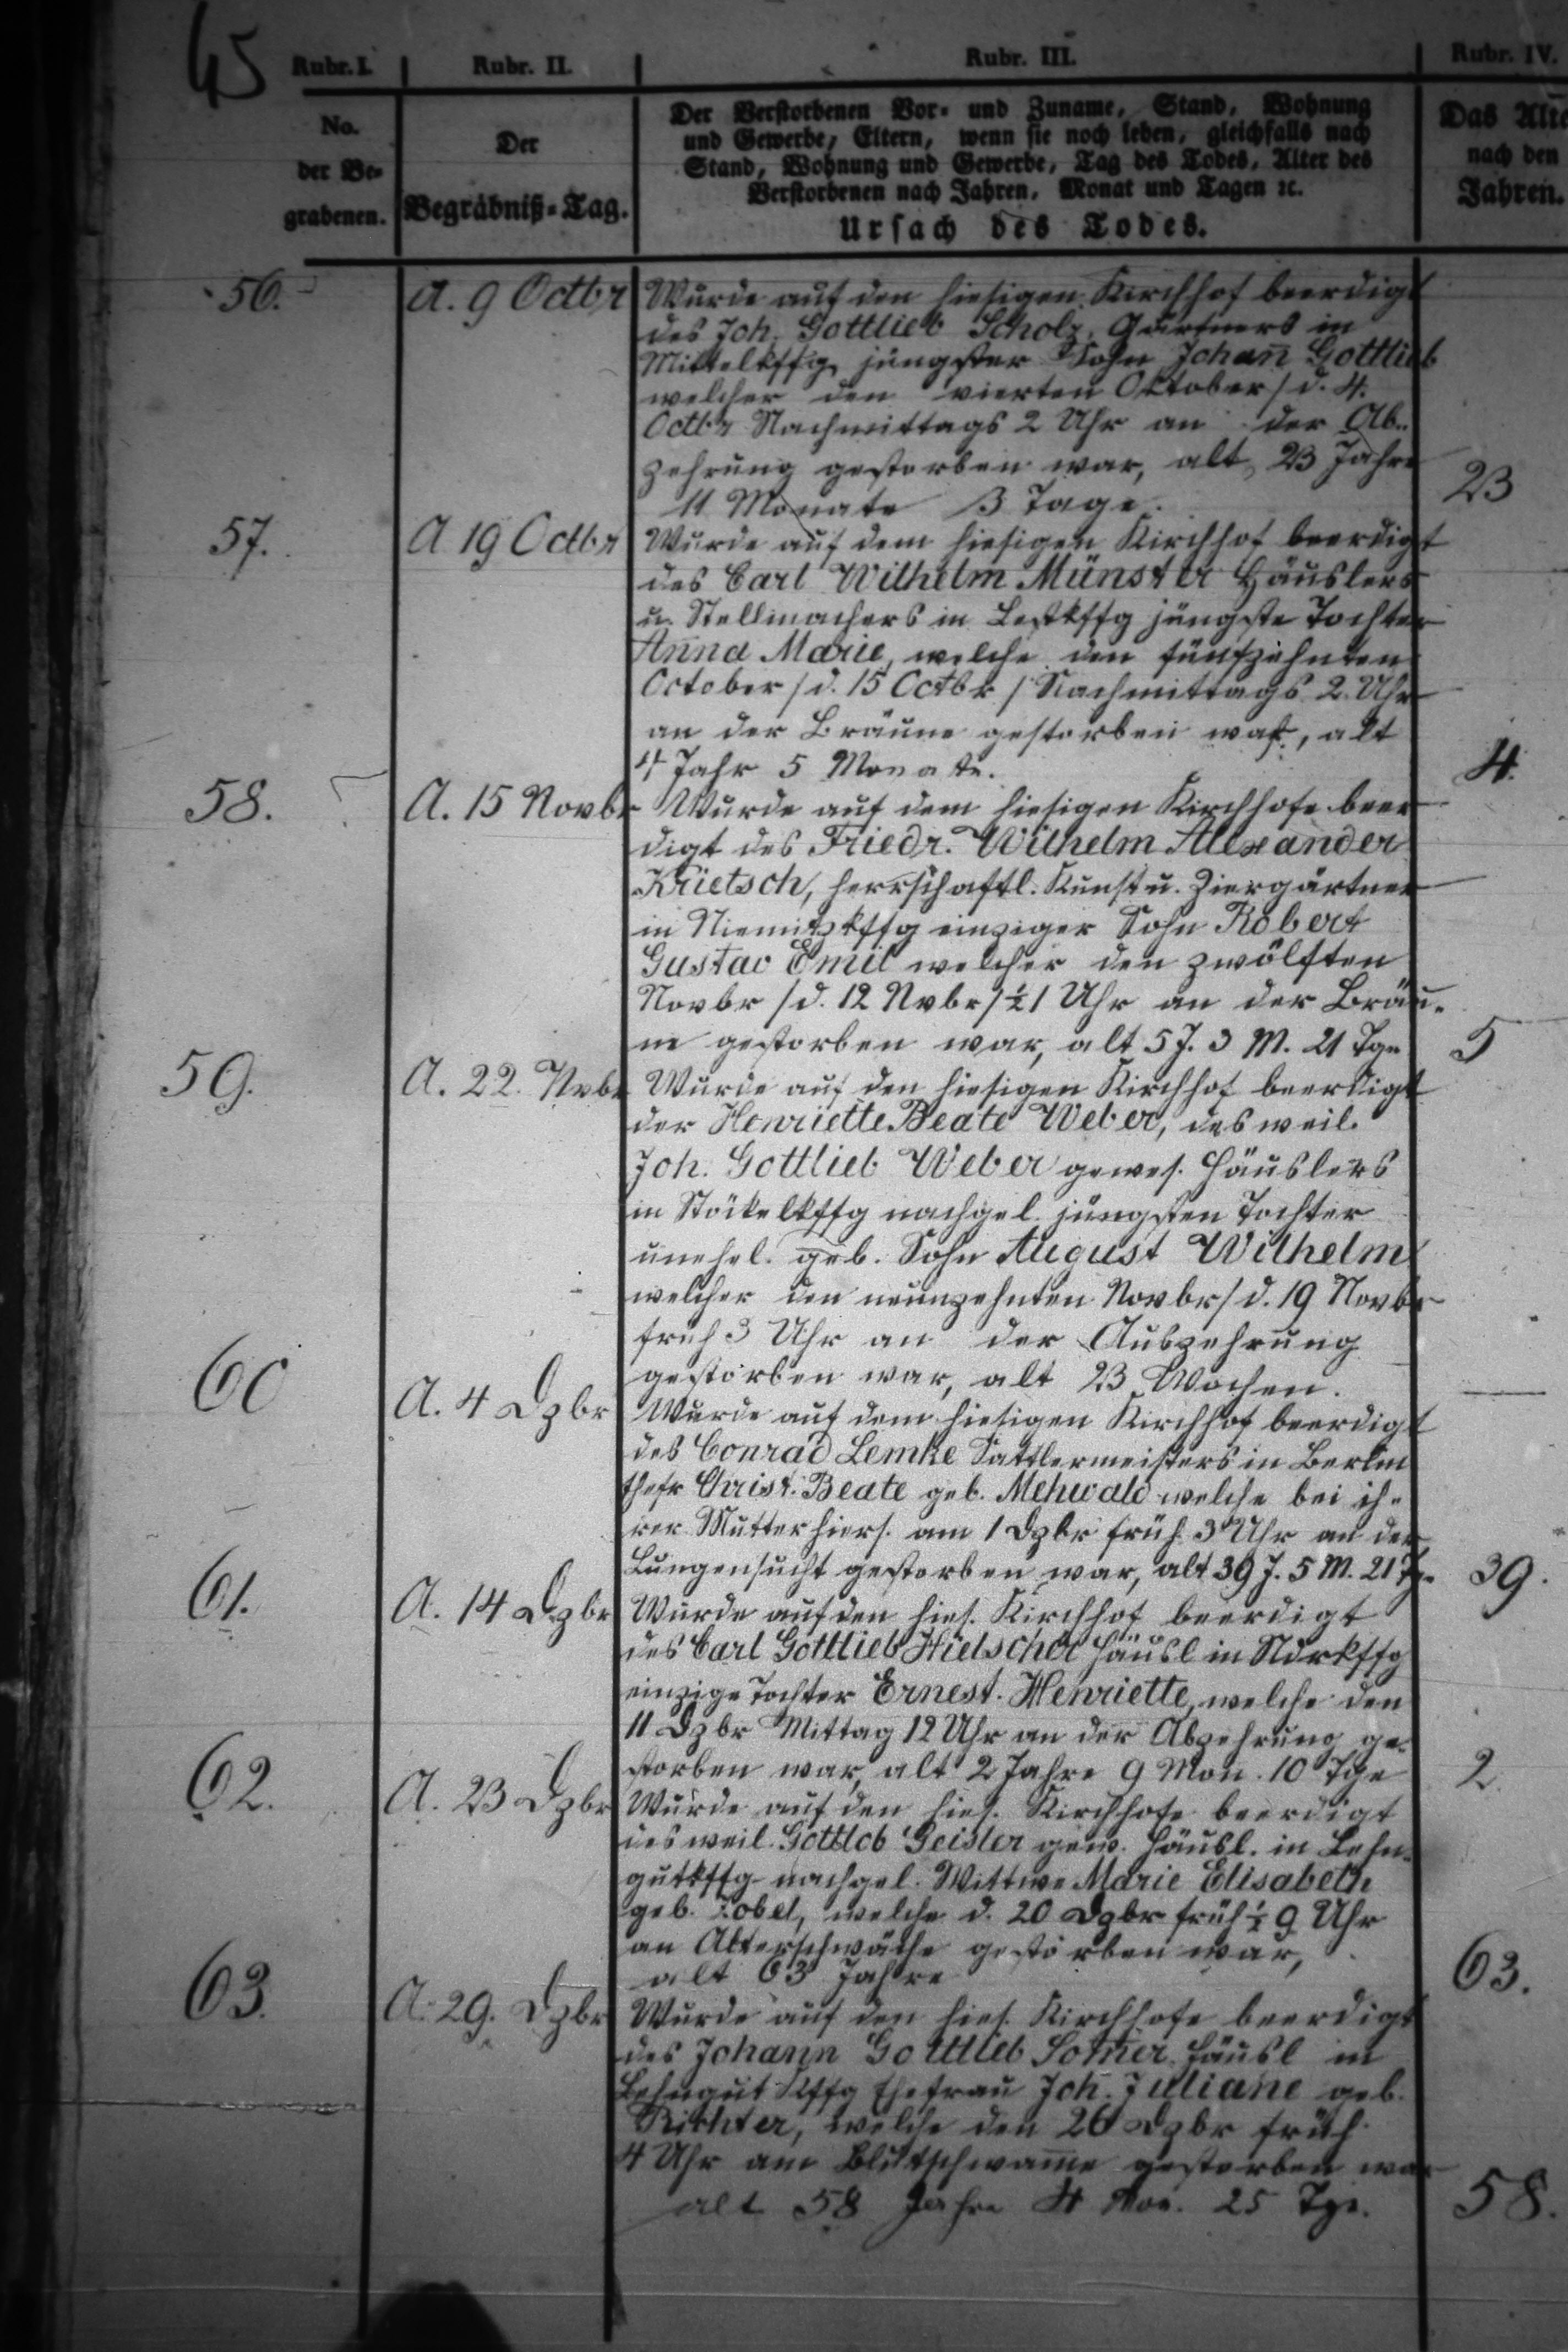 45
Rubr. I.
Rubr. II.
Rubr. III.
Rubr. IV.
No.
der Be-
grabenen.
Der
Begräbniß-Tag.
Der Verstorbenen Vor- und Zuname, Stand, Wohnung
und Gewerbe, Eltern, wenn sie noch leben, gleichfalls nach
Stand, Wohnung und Gewerbe, Tag des Todes, Alter des
Verstorbenen nach Jahren, Monat und Tagen ꝛc.
Ursach des Todes.
Das Alte
nach den
Jahren.
56.
A. 9 Octbr
Wurde auf den hiesigen Kirchhof beerdigt
des Joh. Gottlieb Scholz, Gärtners in
Mittelkffg jüngster Sohn Johañ Gottlieb
welcher den vierten Oktober / d. 4.
Octbr Nachmittags 2 Uhr an der Ab-
zehrung gestorben war, alt 23 Jahre
11 Monate 3 Tage.
23
57.
A 19 Octbr
Wurde auf dem hiesigen Kirchhof beerdigt
des Carl Wilhelm Münster Häuslers
u. Stellmachers in jüngste Tochter
Anna Marie, welche den fünfzehnten
October / d. 15 Octbr / Nachmittags 2 Uhr
an der Bräune gestorben war, alt
4 Jahr 5 Monate.
4.
58.
A. 15 Novbr
Wurde auf dem hiesigen Kirchhofe beer
digt des Friedr. Wilhelm Alexander
Krietsch, herrschaftl. Kunst u. Ziergärtner
in Niemitzkffg einziger Sohn Robert
Gustav Emil welcher den zwölften
Novbr / d. 12 Nvbr / ½ 1 Uhr an der Bräu-
ne gestorben war, alt 5 J. 3 M. 21 Tge
5
59.
A. 22. Nvbr
Wurde auf den hiesigen Kirchhof beerdigt
der Henriette Beate Weber, des weil.
Joh. Gottlieb Weber gewes. Häuslers
in Stöckelkffg nachgel. jüngsten Tochter
unehel. geb. Sohn August Wilhelm
welcher den neunzehnten Novbr / d. 19 Novbr
früh 3 Uhr an der Auszehrung
gestorben war, alt 23 Wochen.
60
A. 4 Dzbr
Wurde auf dem hiesigen Kirchhof beerdigt
des Conrad Lemke Sattlermeisters in Berlin
Ehefr Christ. Beate geb. Mehwald welche bei ih-
rer Mutter hiers. am 1 Dzbr früh 3 Uhr an der
Lungensucht gestorben war, alt 39 J. 5 M. 21 Tg.
39.
61.
A. 14 Dzbr
Wurde auf den hies. Kirchhof beerdigt
des Carl Gottlieb Hielscher Häusl in Ndrkffg
einzige Tochter Ernest. Henriette, welche den
11 Dzbr Mittag 12 Uhr an der Abzehrung ge-
storben war, alt 2 Jahre 9 Mon. 10 Tge
2
62.
A. 23 Dzbr
Wurde auf den hies. Kirchhofe beerdigt
des weil. Gottlob Geisler gew. Häusl. in Lehn-
gutkffg nachgel. Wittwe Marie Elisabeth
geb. Zobel, welche d. 20 Dzbr früh ½ 9 Uhr
an Alterschwäche gestorben war,
alt 63 Jahre
63.
63.
A. 29. Dzbr
Wurde auf den hies. Kirchhofe beerdigt
des Johann Gottlieb Som̃er Häusl in
Lehngut Kffg Ehefrau Joh. Juliane geb.
Richter, welche den 26 Dzbr früh
4 Uhr am Blutschwam̃e gestorben war
alt 58 Jahre 4 Mon. 25 Tge.
58.